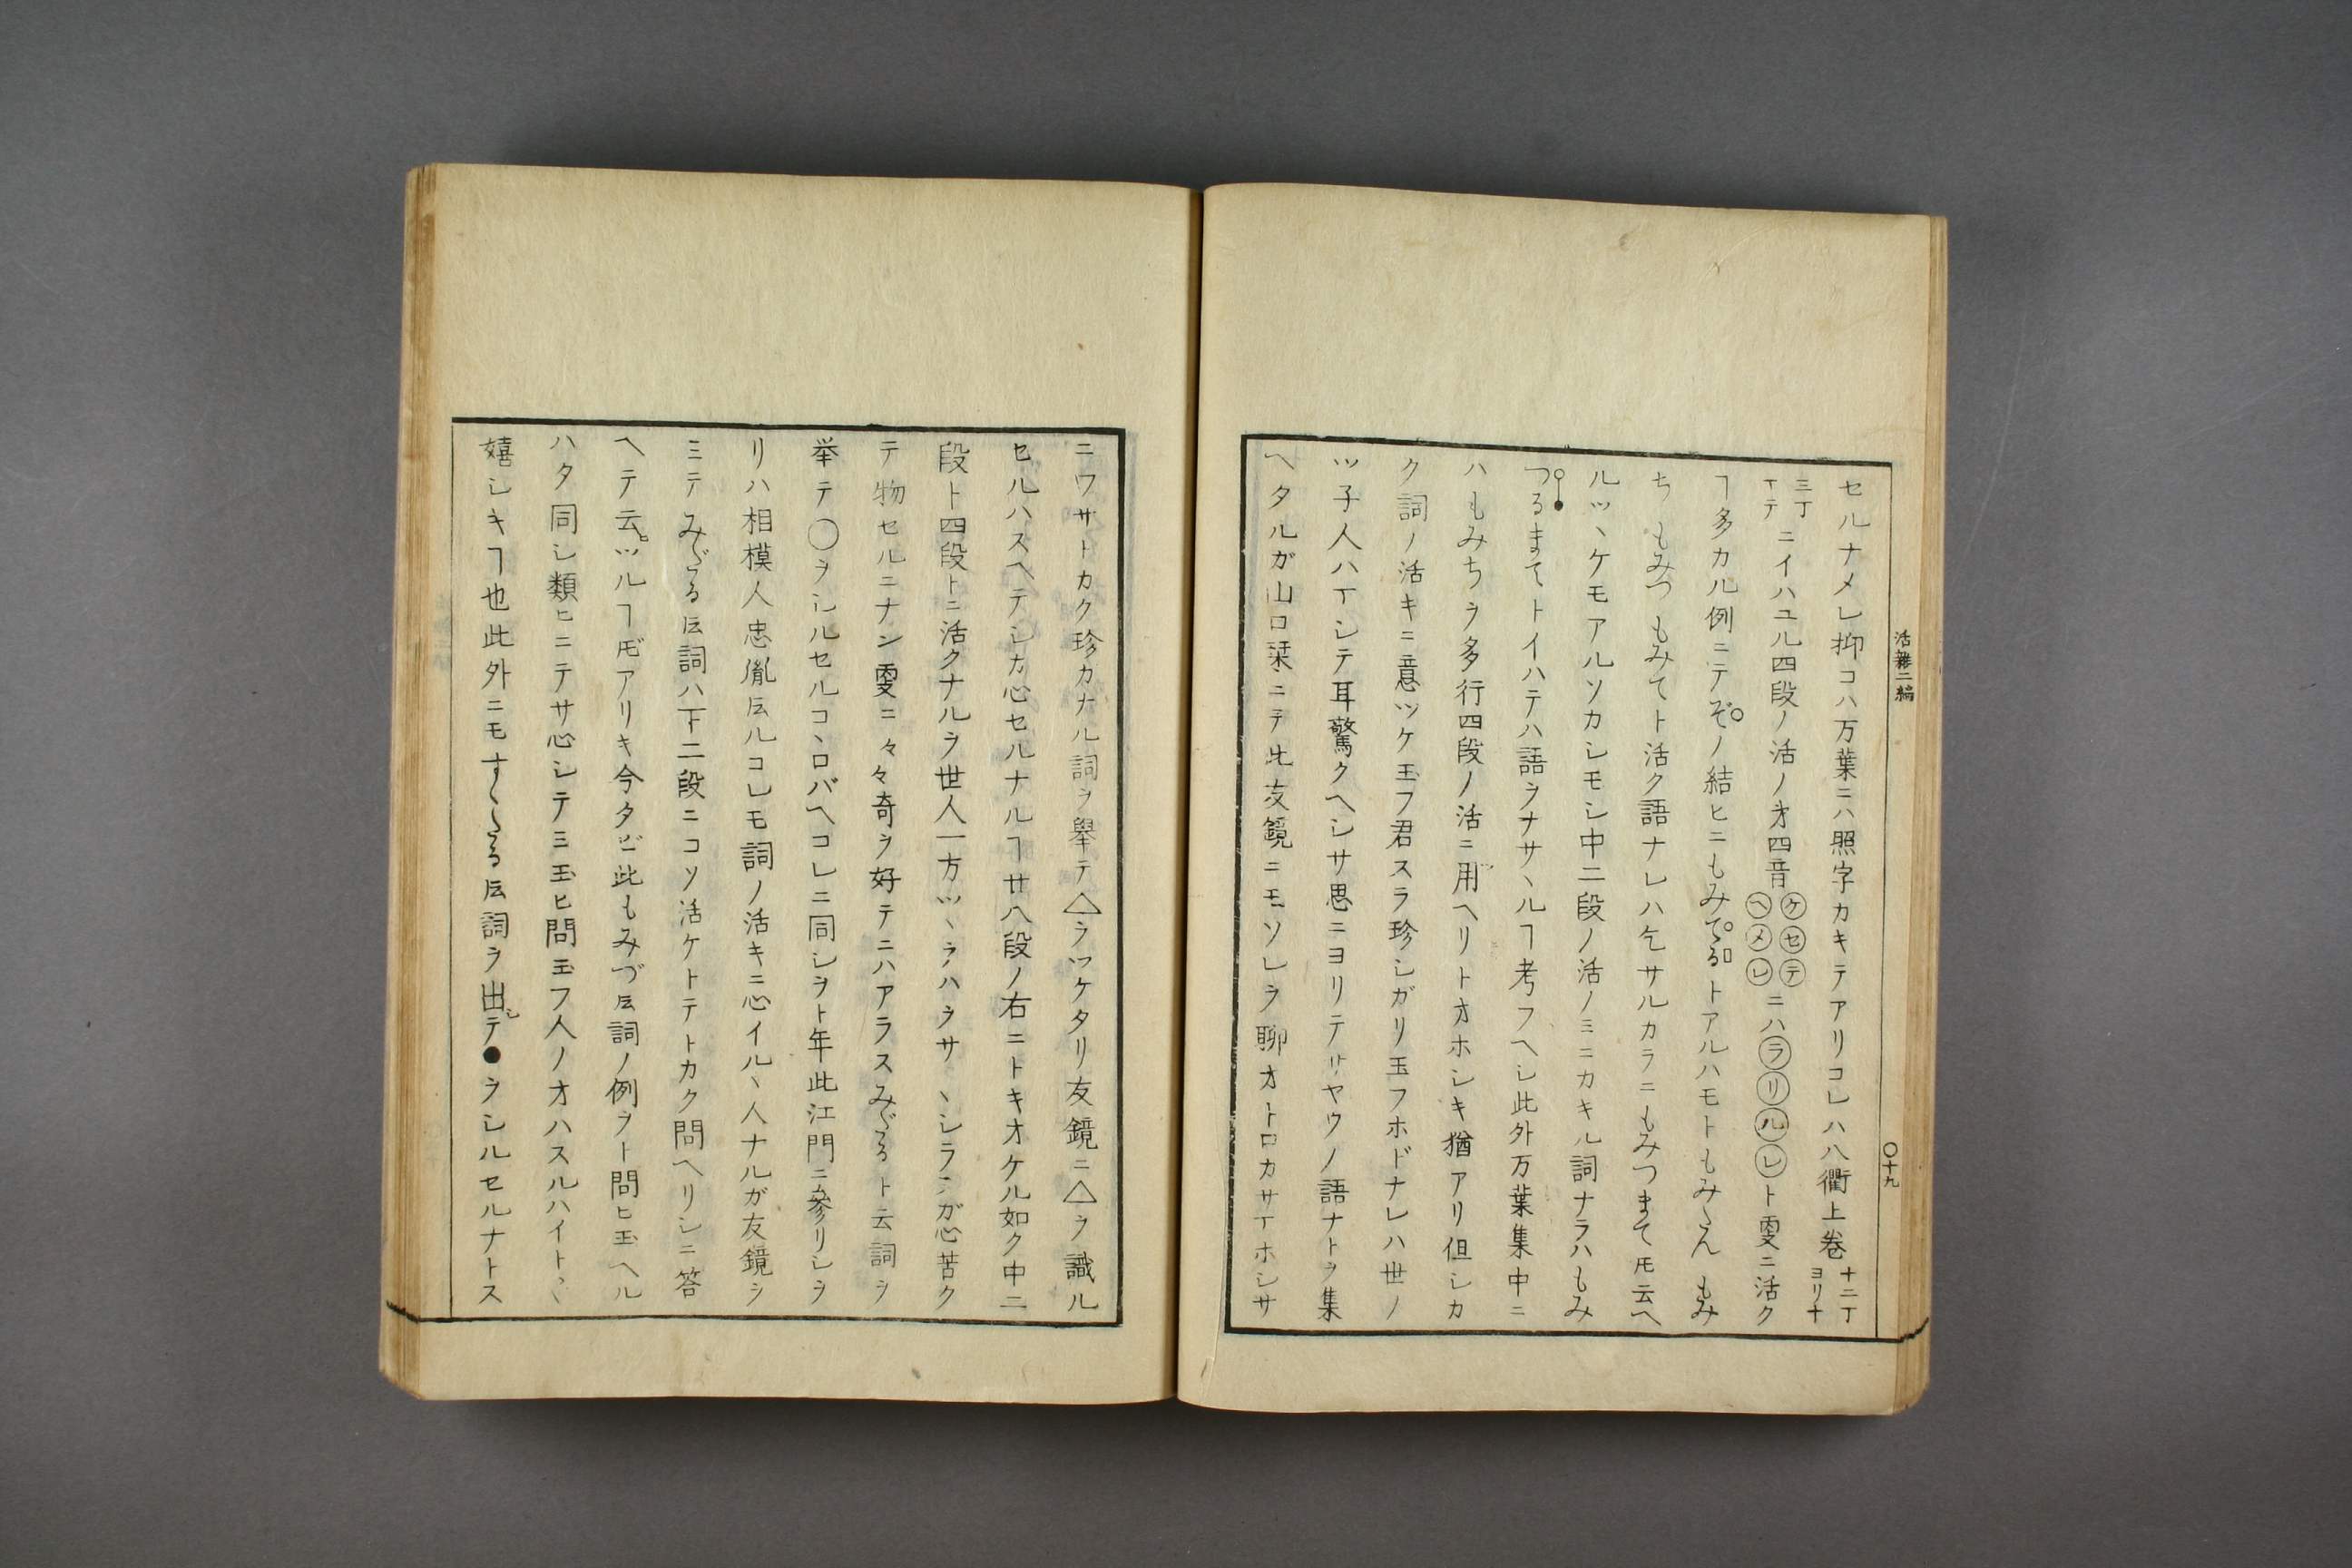 活雜二編
〇十九
セルナメレ抑コハ万葉ニハ照字カキテアリコレハ八衢上巻十二丁ヨリ十
三丁マテニイハユル四段ノ活ノオ四音ケセテヘメレニハラリルレト雯ニ活ク
ヿ多カル例ニテぞノ結ヒニもみてるトアルハモトもみたんもみ
ちもみつもみてト活ク語ナレハ乞サルカラニもみつまてトモ云ヘ
ルツヽケモアルソカシモシ中二段ノ活ノミニカキル詞ナラハもみ
つるまてトイハテハ語ヲナサヽルヿ考フヘシ此外万葉集中ニ
ハもみちヲ多行四段ノ活ニ用ヘリトオホシキ猶アリ但シカ
ク詞ノ活キニ意ツケ玉フ君スラ珍シガリ玉フホドナレハ世ノ
ツ子人ハイシテ耳驚クヘシサ思ニヨリテサヤウノ語ナトヲ集
ヘタルガ山口栞ニテ此友鏡ニモソレヲ聊オトロカサマホシサ
ニワサトカク珍カナル詞ヲ擧テ△ラツケタリ友鏡ニ△ヲ識ル
セルハスヘテシカ心セルナルヿ廿八段ノ右ニトキオケル如ク中二
段ト四段トニ活クナルヲ世人一方ツヽラハヲサヽシラ子が心苦ク
テ物セルニナン雯ニ々々奇ヲ好テニハアラスみだるト云詞ヲ
挙テ〇ヲシルセルコヽロバヘコレニ同シヲト年此江門ニ參リシヲ
リハ相模人忠胤云ルコレモ詞ノ活キニ心イルヽ人ナルガ友鏡ヲ
ミテみだるト云詞ハ下二段ニコソ活ケトテトカク問ヘリシニ答
ヘテ云ヒツルヿトモアリキ今タビ此もみづト云詞ノ例ヲト問ヒ玉ヘル
ハタ同シ類ヒニテサ心シテミ玉ヒ問玉フ人ノオハスルハイトヽ
嬉シキヿ也此外ニモすくるト云詞ヲ出シテ●ヲシルセルナトス